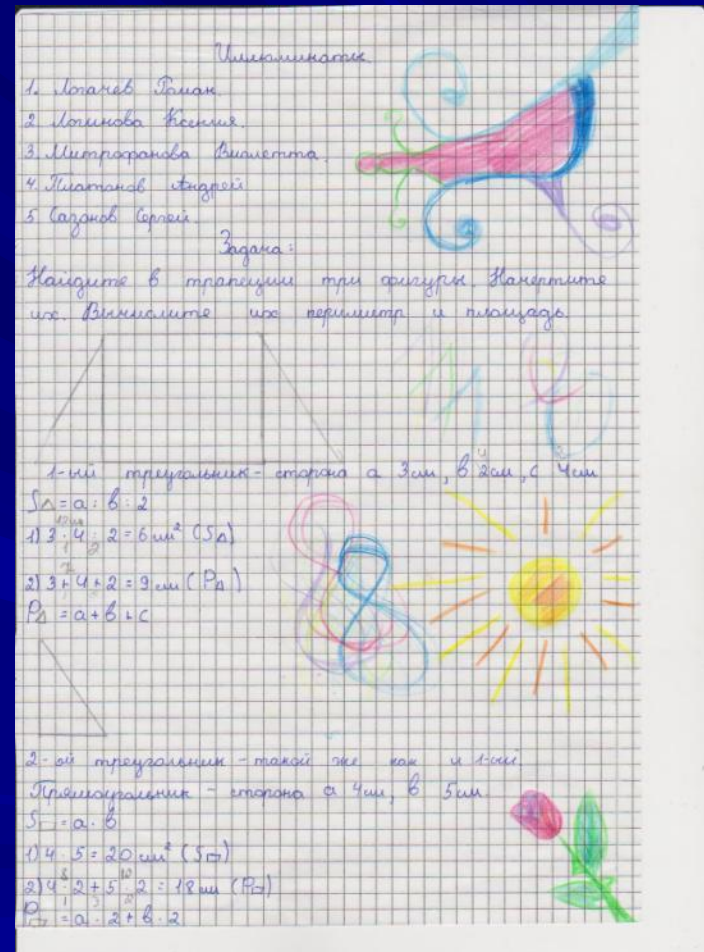 Иллюминаты.
1. Логачев Роман.
2. Логинова Ксения.
3. Митрофанова Виолетта.
4. Платонов Андрей
5. Сазонов Сергей.
Задача:
Найдите в трапеции три фигуры. Начертите
их. Вычислите их периметр и площадь.
1-ый треугольник - сторона a 3см, в 2см, с 4см
S△ = a : в : 2
1) 3 · 4 : 2 = 6 см² (S△)
2) 3 + 4 + 2 = 9 см (P△)
P△ = a + в + c
2-ой треугольник - такой же как и 1-ый.
Прямоугольник - сторона a 4см, в 5см
S▭ = a · в
1) 4 · 5 = 20 см² (S▭)
2) 4 · 2 + 5 · 2 = 18 см (P▭)
P▭ = a · 2 + в · 2